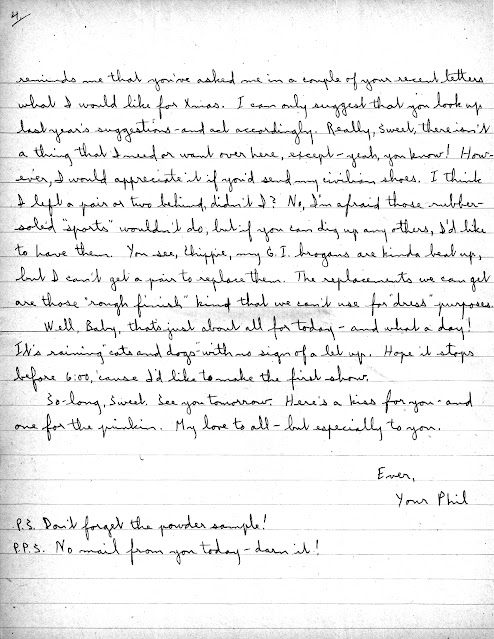 4/
reminds me that you've asked me in a couple of your recent letters
what I would like for Xmas. I can only suggest that you look up
last year's suggestions - and act accordingly. Really, Sweet, there isn't
a thing that I need or want over here, except - yeah, you know! How-
ever, I would appreciate it if you'd send my civilian shoes. I think
I left a pair or two behind, didn't I? No, I'm afraid those rubber-
soled "sports" wouldn't do, but if you can dig up any others, I'd like
to have them. You see, Chippie, my G.I. brogans are kinda beat up,
but I can't get a pair to replace them. The replacements we can get
are those "rough finish" kind that we can't use for "dress" purposes.
Well, Baby, that's just about all for today - and what a day!
It's raining "cats and dogs" with no sign of a let up. Hope it stops
before 6:00, 'cause I'd like to make the first show.
So-long, Sweet. See you tomorrow. Here's a kiss for you - and
one for the punkin. My love to all - but especially to you.
Ever,
Your Phil
P.S. Don't forget the powder sample!
P.P.S. No mail from you today - darn it!